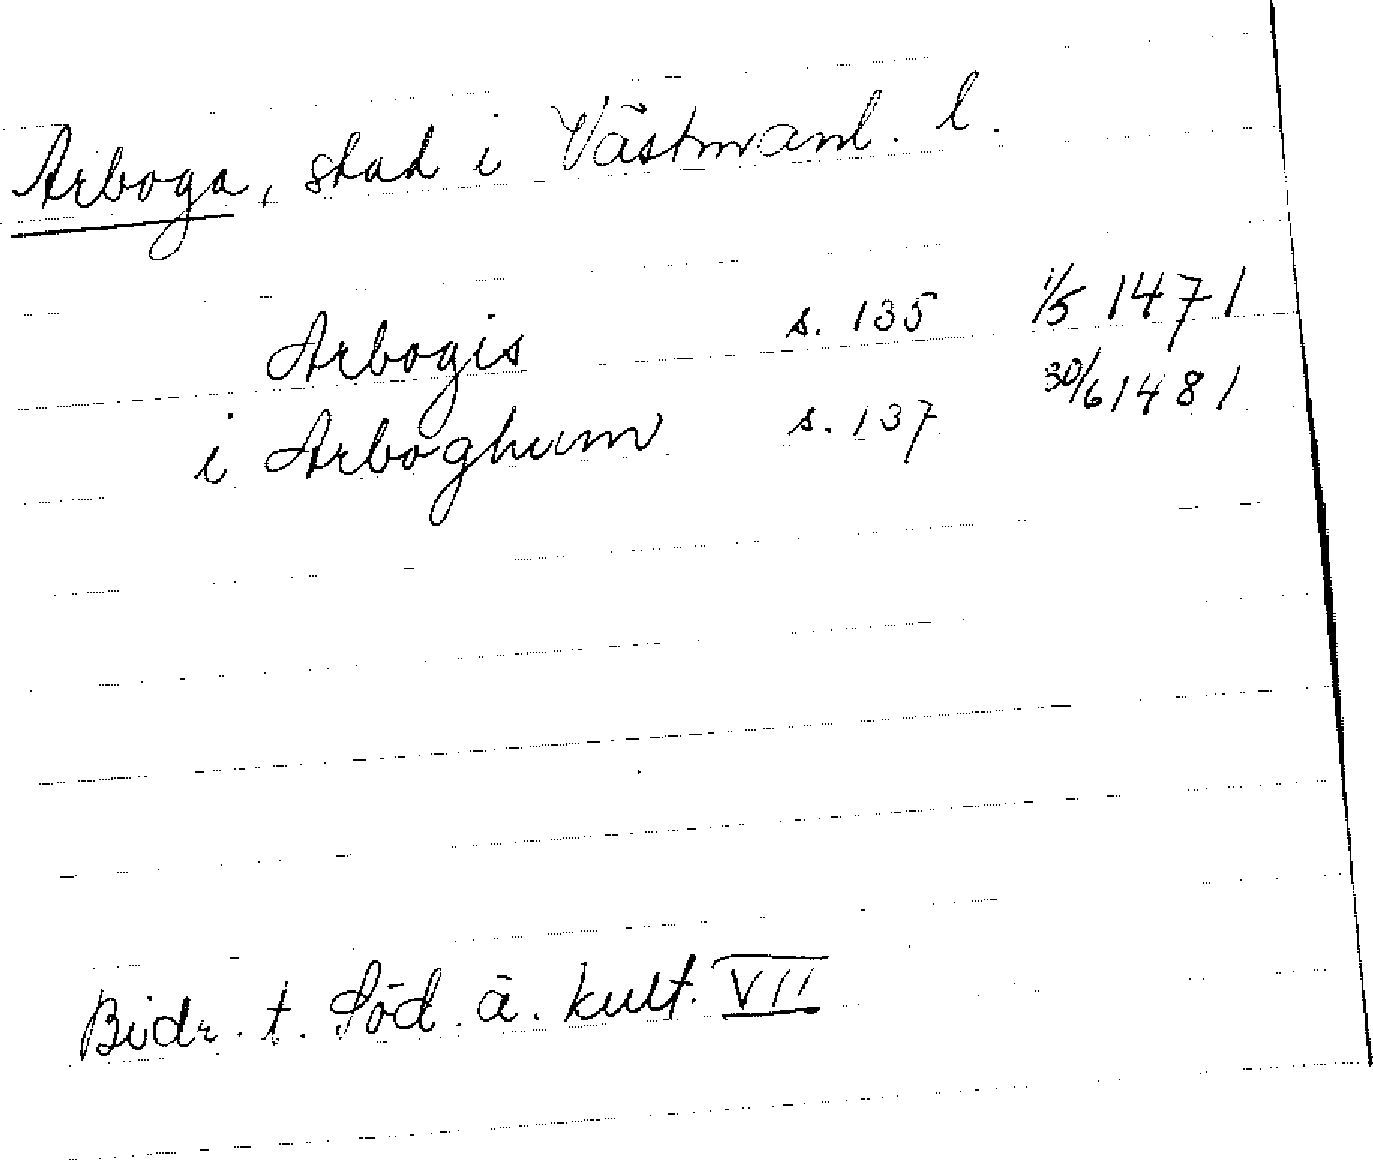 Arboga, stad i Västmanl. l.
Arbogis s. 135 1/5 1471
i Arboghum s. 137 30/6 1481
Bidr. t. Söd. ä. kult. VII